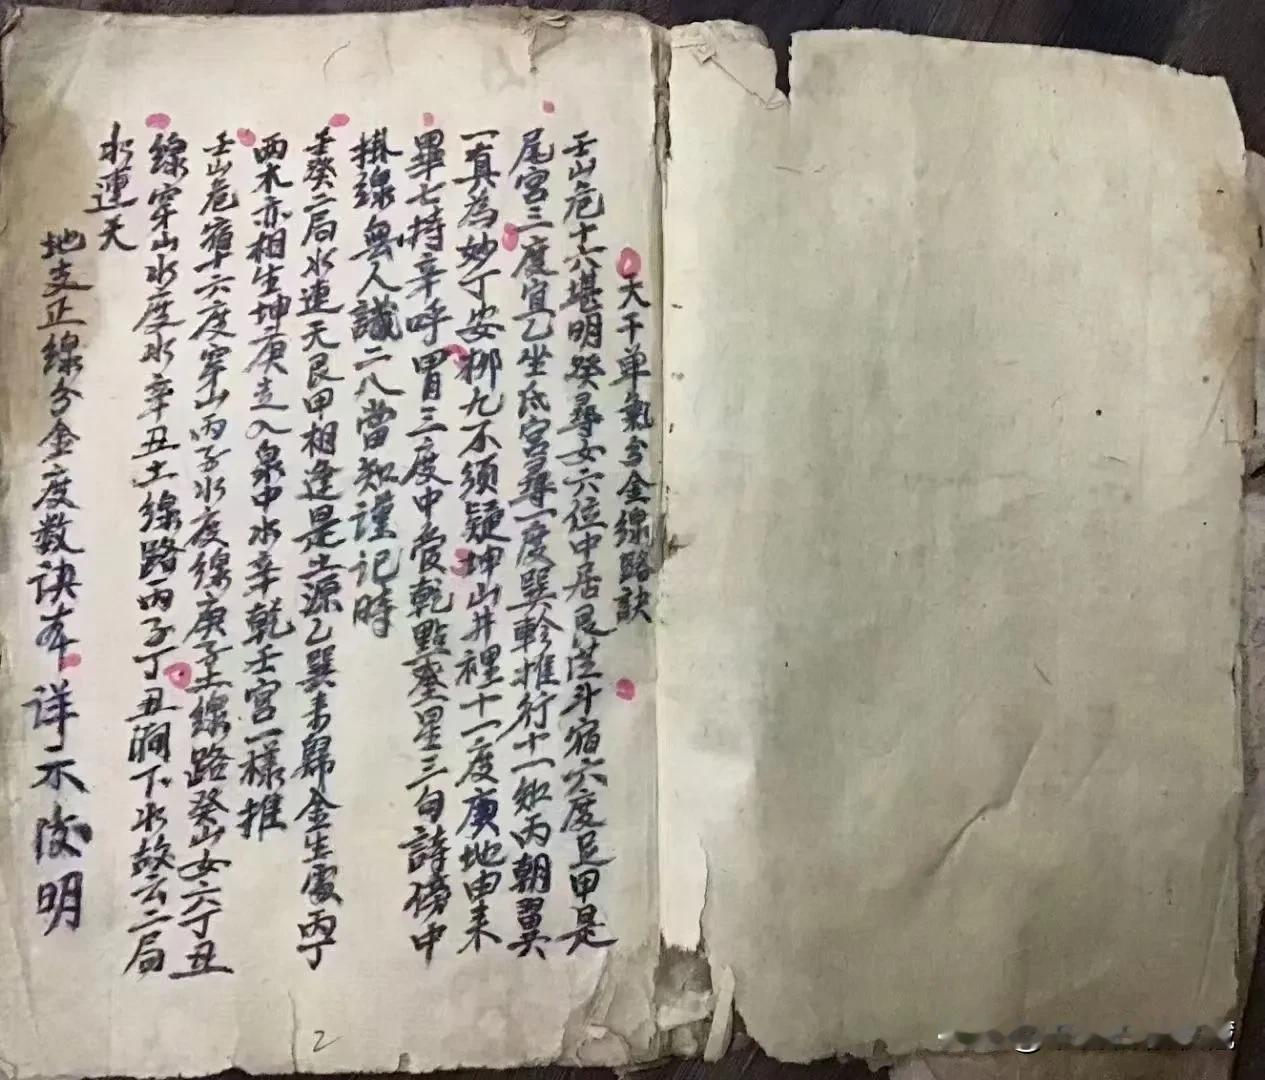 天干单氣分金線路訣
壬山危十六堪明癸尋女六位中居艮從斗宿六度是甲是
尾宮三度宜乙坐氐宮尋一度巽軫推行十一知丙朝翼
一真為妙丁安柳九不須疑坤山井裡十一度庚地由来
畢七持辛呼胃三度中管乾點奎星三句詩傍中
掛線無人識二八當知謹記時
壬癸二局水連天艮甲相逢是土源乙巽来歸金生處丙丁
西木亦相生坤庚走入泉中水辛乾壬宮一樣推
壬山危宿十六度穿山丙子水度線庚子土線路癸山女六丁丑
線穿山水度水辛丑土線路丙子丁丑澗下水故云二局
水連天
地支正線分金度数訣年詳不改明
2